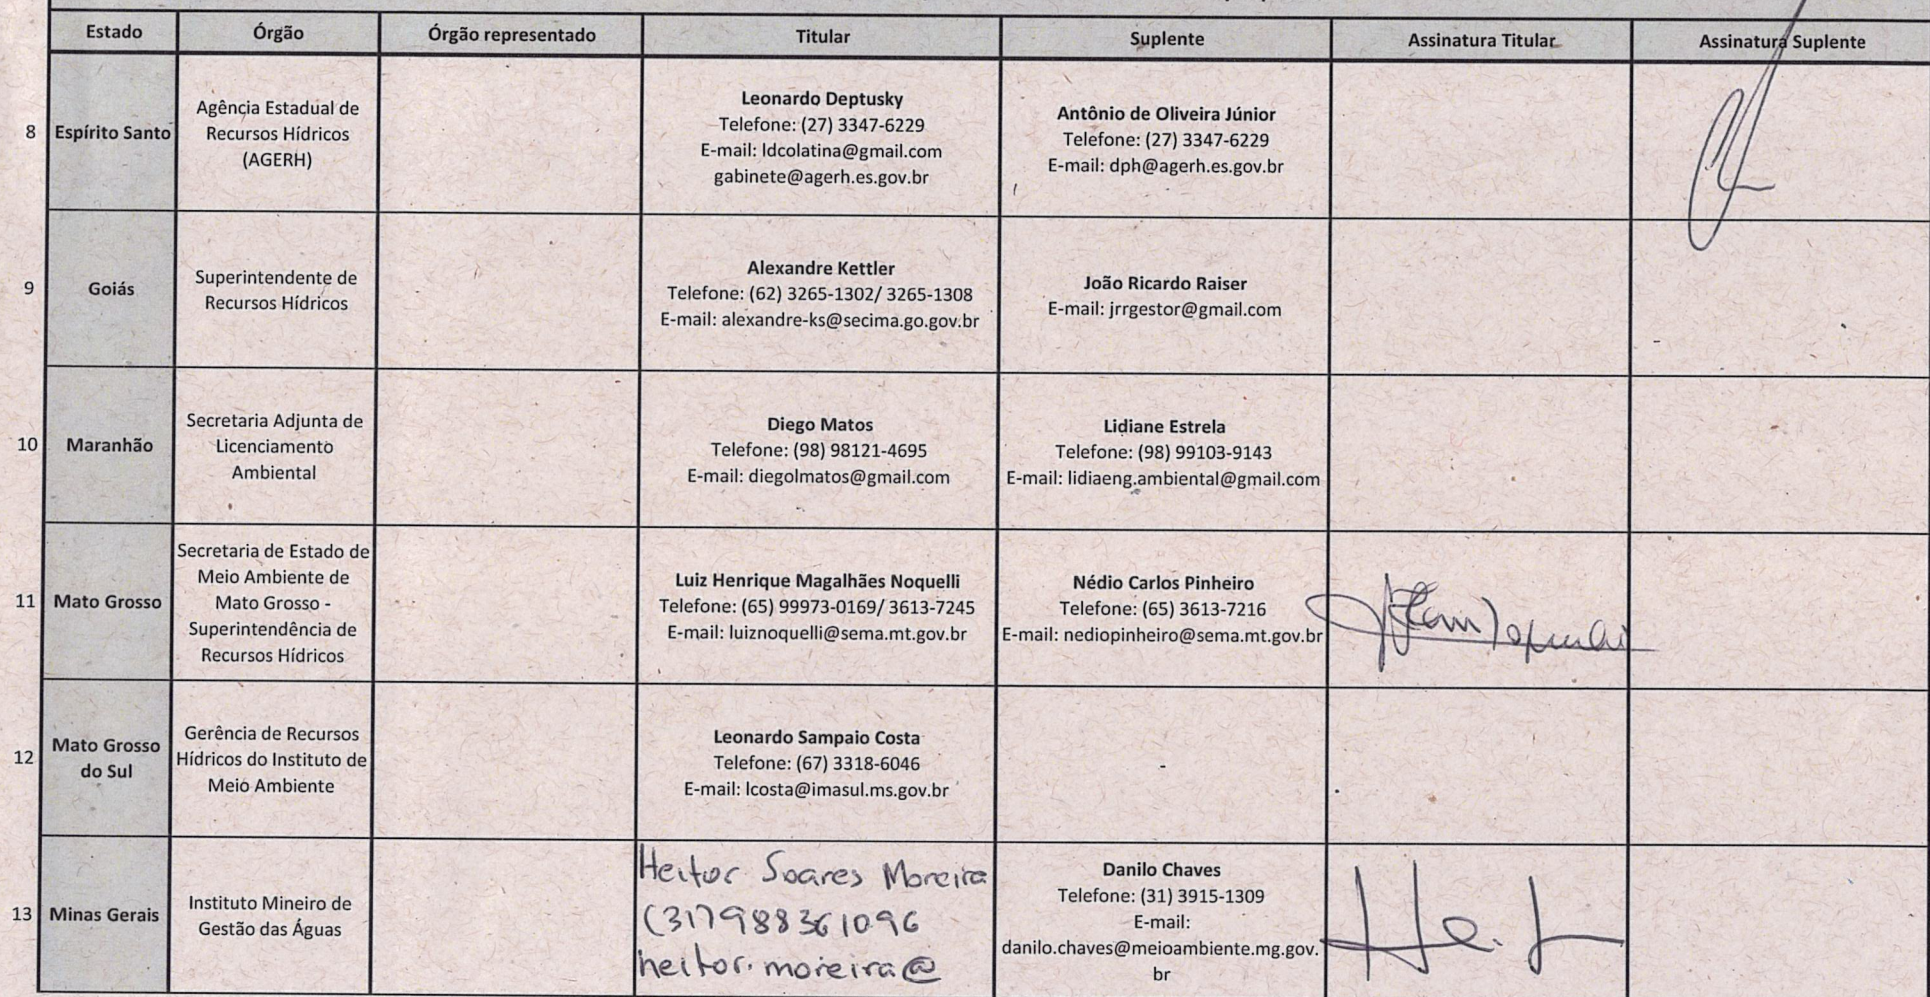 Estado Órgão Órgão representado Titular Suplente Assinatura Titular Assinatura Suplente
8
Espírito Santo
Agência Estadual de
Recursos Hídricos
(AGERH)
Leonardo Deptusky
Telefone: (27) 3347-6229
E-mail: ldcolatina@gmail.com
gabinete@agerh.es.gov.br
Antônio de Oliveira Júnior
Telefone: (27) 3347-6229
E-mail: dph@agerh.es.gov.br
9
Goiás
Superintendente de
Recursos Hídricos
Alexandre Kettler
Telefone: (62) 3265-1302/ 3265-1308
E-mail: alexandre-ks@secima.go.gov.br
João Ricardo Raiser
E-mail: jrrgestor@gmail.com
10
Maranhão
Secretaria Adjunta de
Licenciamento
Ambiental
Diego Matos
Telefone: (98) 98121-4695
E-mail: diegolmatos@gmail.com
Lidiane Estrela
Telefone: (98) 99103-9143
E-mail: lidiaeng.ambiental@gmail.com
11
Mato Grosso
Secretaria de Estado de
Meio Ambiente de
Mato Grosso -
Superintendência de
Recursos Hídricos
Luiz Henrique Magalhães Noquelli
Telefone: (65) 99973-0169/ 3613-7245
E-mail: luiznoquelli@sema.mt.gov.br
Nédio Carlos Pinheiro
Telefone: (65) 3613-7216
E-mail: nediopinheiro@sema.mt.gov.br
12
Mato Grosso
do Sul
Gerência de Recursos
Hídricos do Instituto de
Meio Ambiente
Leonardo Sampaio Costa
Telefone: (67) 3318-6046
E-mail: lcosta@imasul.ms.gov.br
-
13
Minas Gerais
Instituto Mineiro de
Gestão das Águas
Heitor Soares Moreira
(31) 988361096
heitor.moreira@
Danilo Chaves
Telefone: (31) 3915-1309
E-mail:
danilo.chaves@meioambiente.mg.gov.
br